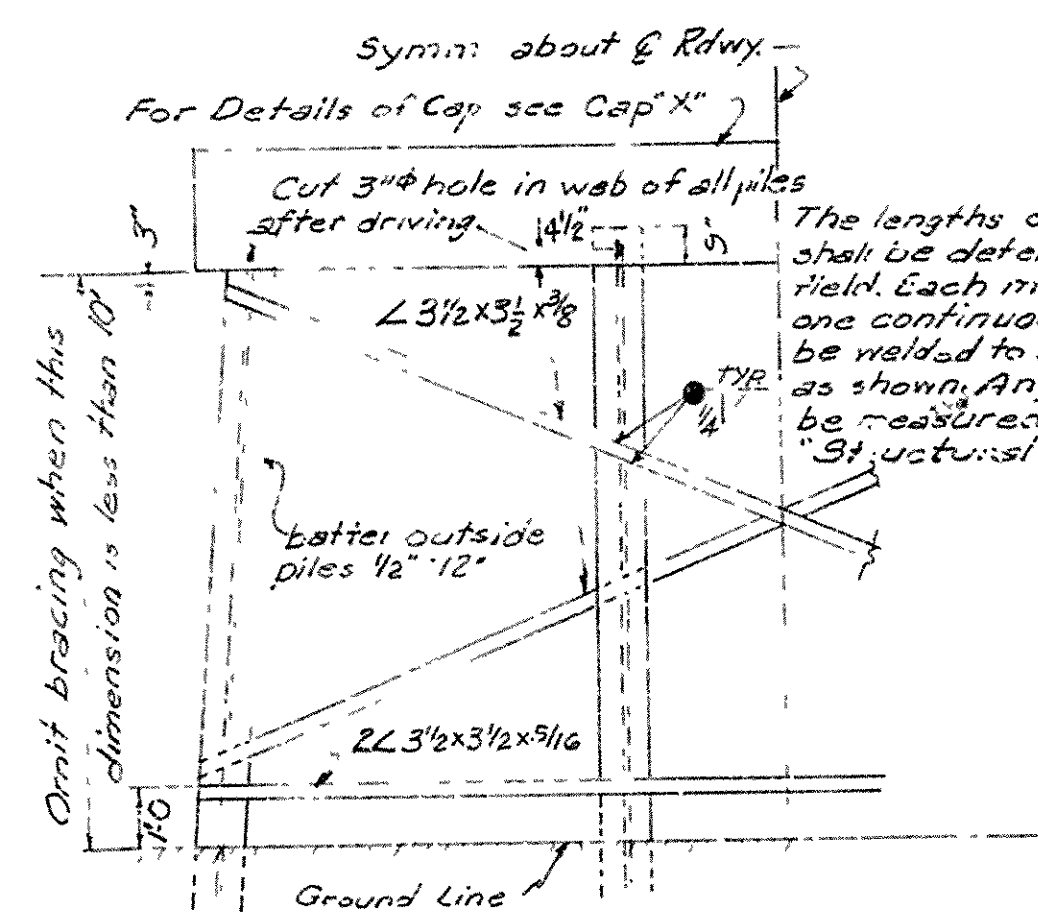 Symm about ℄ Rdwy.
For Details of Cap see Cap "X"
Cut 3"Φ hole in web of all piles
after driving.
4½"
9"
3"
∠3½x3½x3/8
TYP.
1/4
The lengths o
shall be deter
field. Each m
one continuo
be welded to
as shown. An
be measured
"Structural
Omit bracing when this
dimension is less than 10'
batter outside
piles ½":12"
2∠3½x3½x5/16
1'0
Ground Line